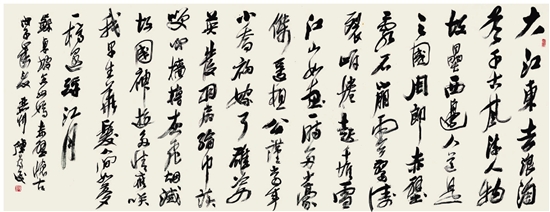 大江東去浪淘
盡千古風流人物
故壘西邊人道是
三國周郎赤壁
亂石崩雲驚濤
裂岸捲起千堆雪
江山如畫一時多少豪
傑遙想公瑾當年
小喬初嫁了雄姿
英發羽扇綸巾談
笑間檣櫓灰飛煙滅
故國神遊多情應笑
我早生華髮人間如夢
一樽還酹江月
蘇東坡念奴嬌赤壁懷古